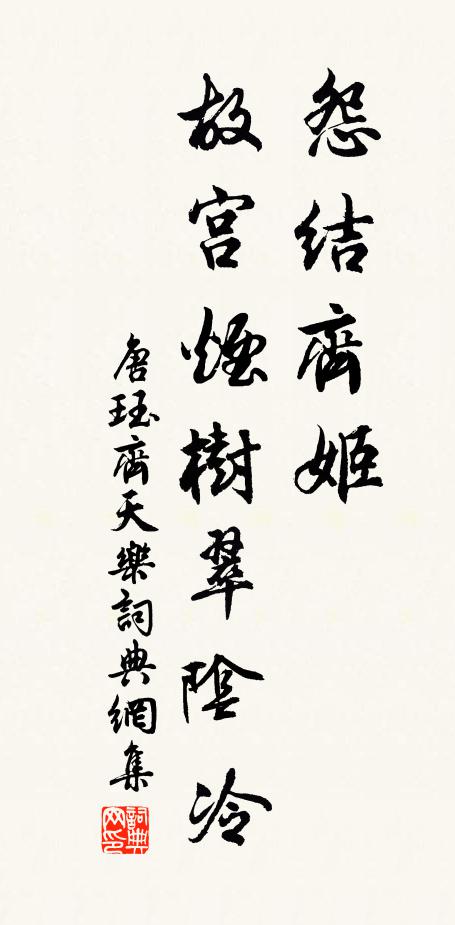 怨結齊姬
故宮煙樹翠陰冷
唐珏齊天樂詞典網集
詞典網印